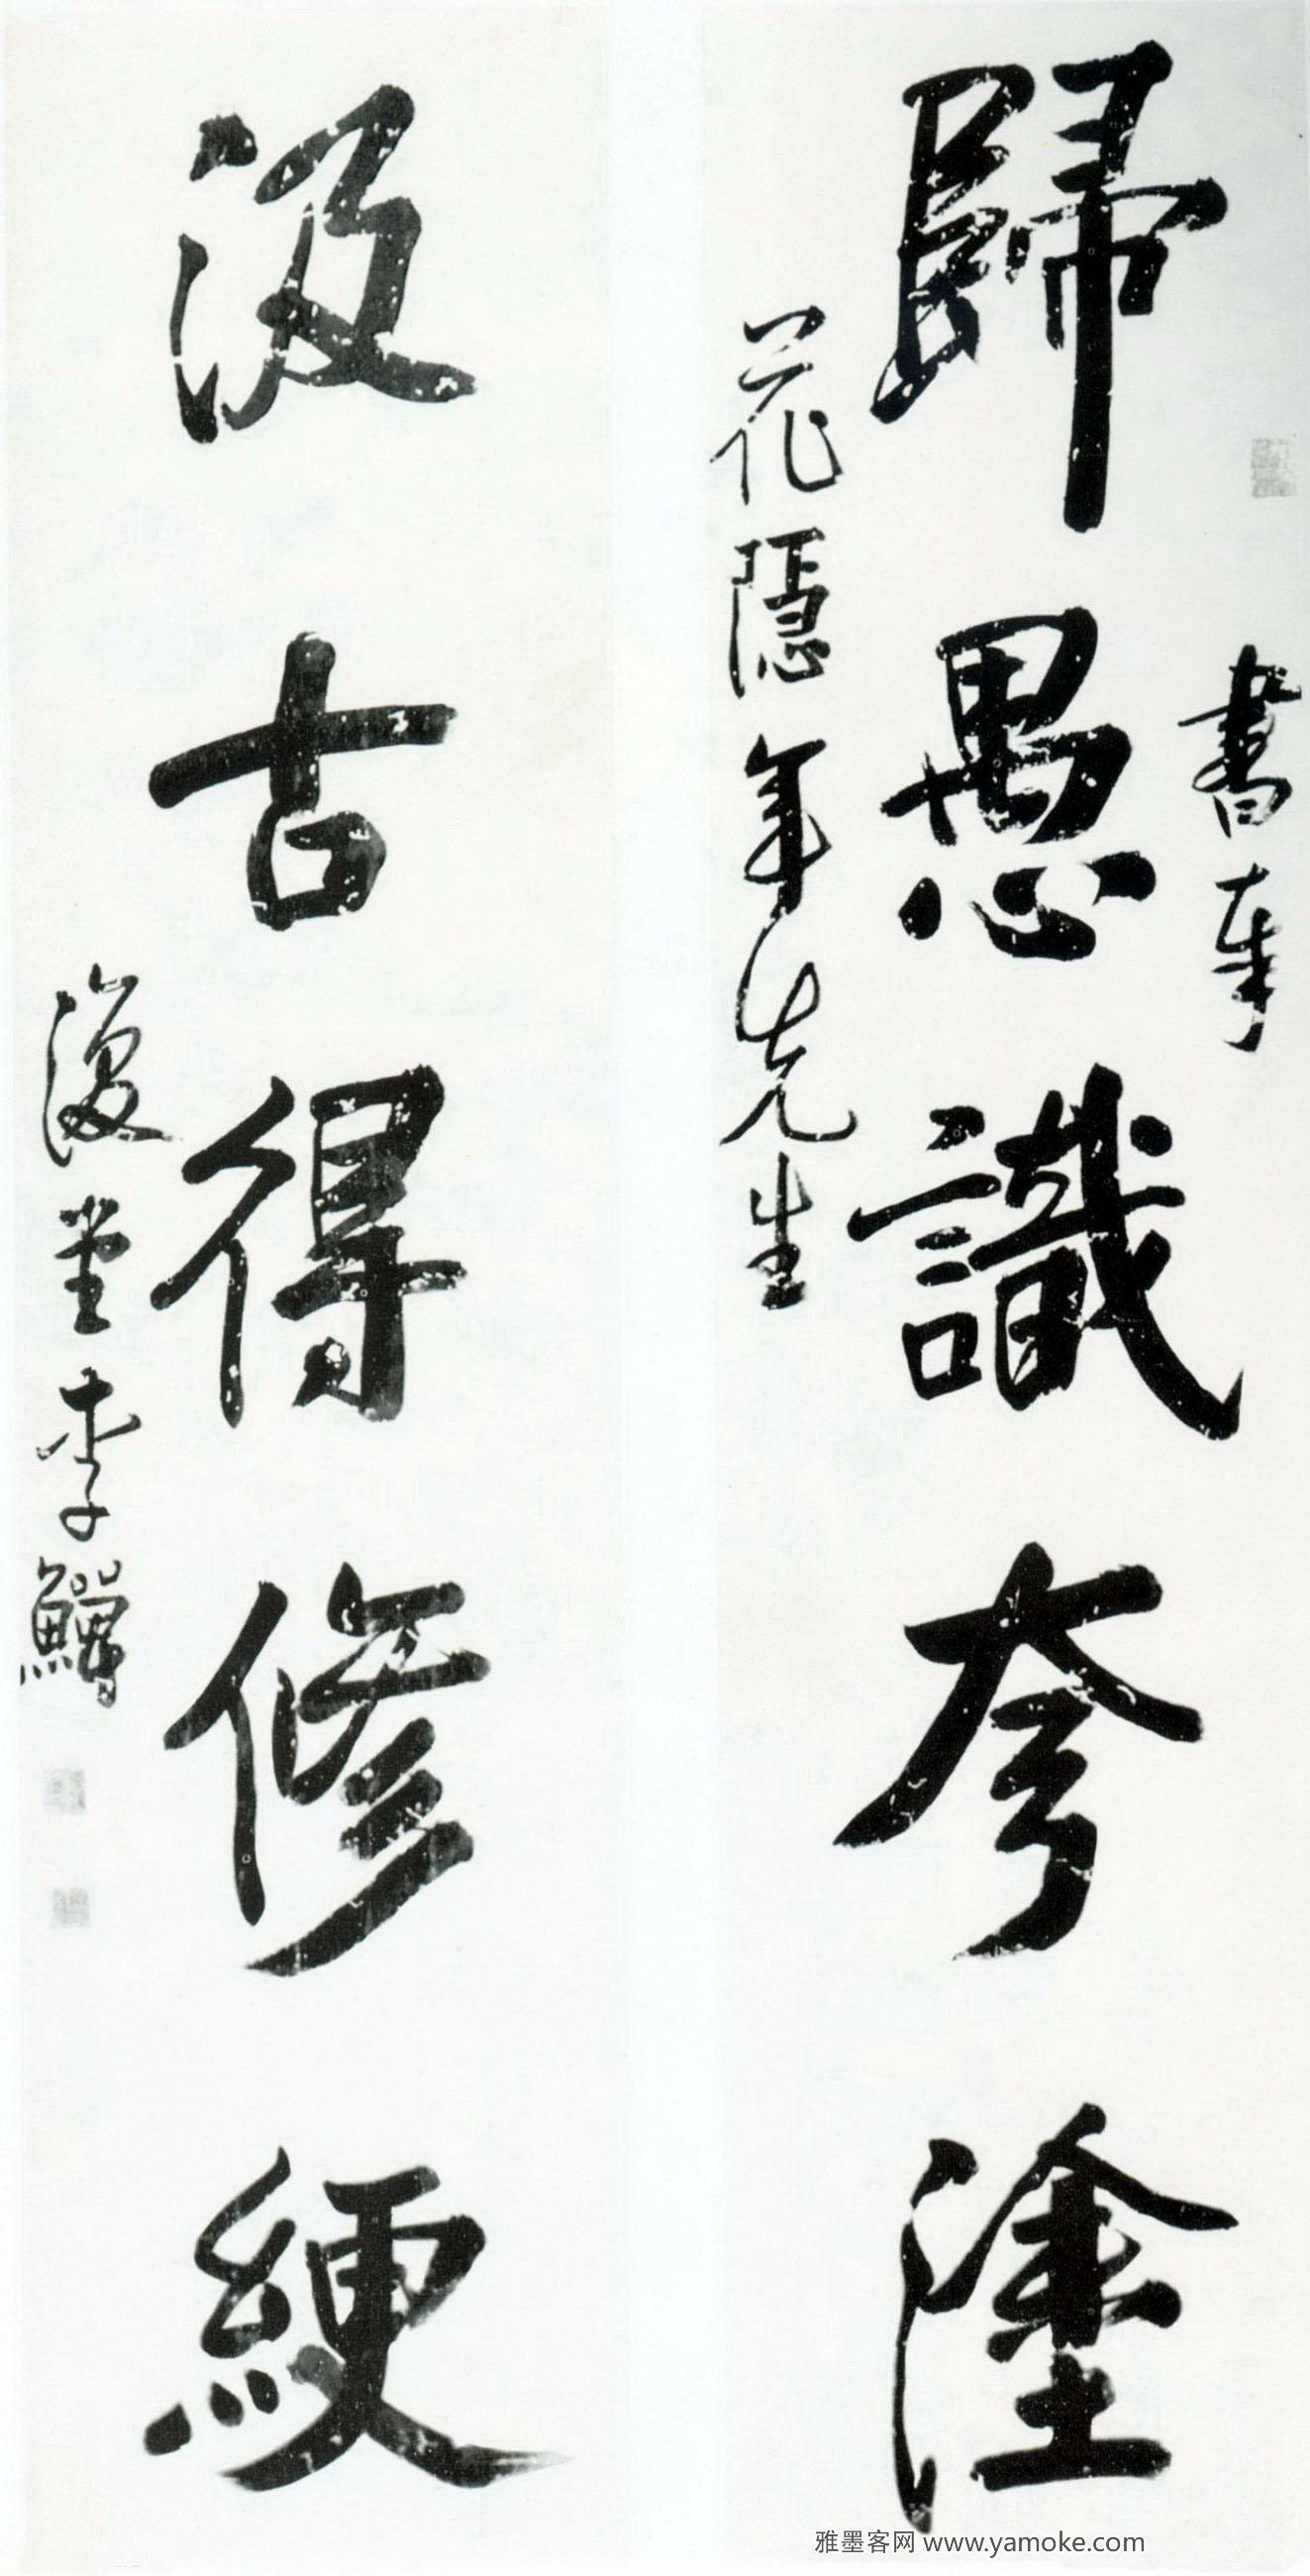 書奉
歸愚識夸塗
花隱年先生
汲古得修綆
復堂李鱓
雅墨客网 www.yamoke.com